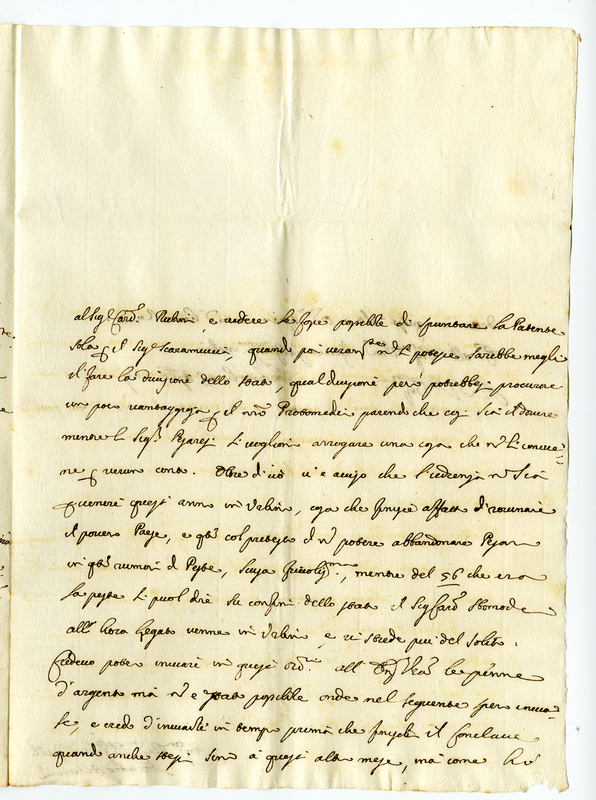 al Sig.r Card.l Rubini, e vedere se fosse possibile di spuntare la Patente
sola p il Sig.r Scaramucci, quando poi veram.te nō si potesse sarebbe meglio
il fare la divisione dello stato, qual divisione però potrebbesi procurare
un poco vantaggiosa p il nrō Protomedico parendo che così sia il dovere
mentre li Sig.ri Pesaresi si vogliono arrogare una cosa che nō li convie=
ne p verun conto. Oltre di ciò vi è avviso che l'udienza nō sia
p venire quest'anno in Urbino, cosa che finisce affatto di rovinare
il povero Paese, e q.to col pretesto di nō potere abbandonare Pesaro
in q.ti rumori di Peste, scusa frivolissima, mentre del 56 che era
la peste si puol dire su confini dello stato il Sig.r Card.
all'hora Legato venne in Urbino e vi stiede più del solito.
Credevo poter inviare in quest' ord.rio all' le penne
d'argento mà nō è stato possibile onde nel seguente spero inviar=
le, e credo d'inviarle in tempo prima che finischi il Conclave
quando anche stessi sino à quest' altro mese, mà come hò